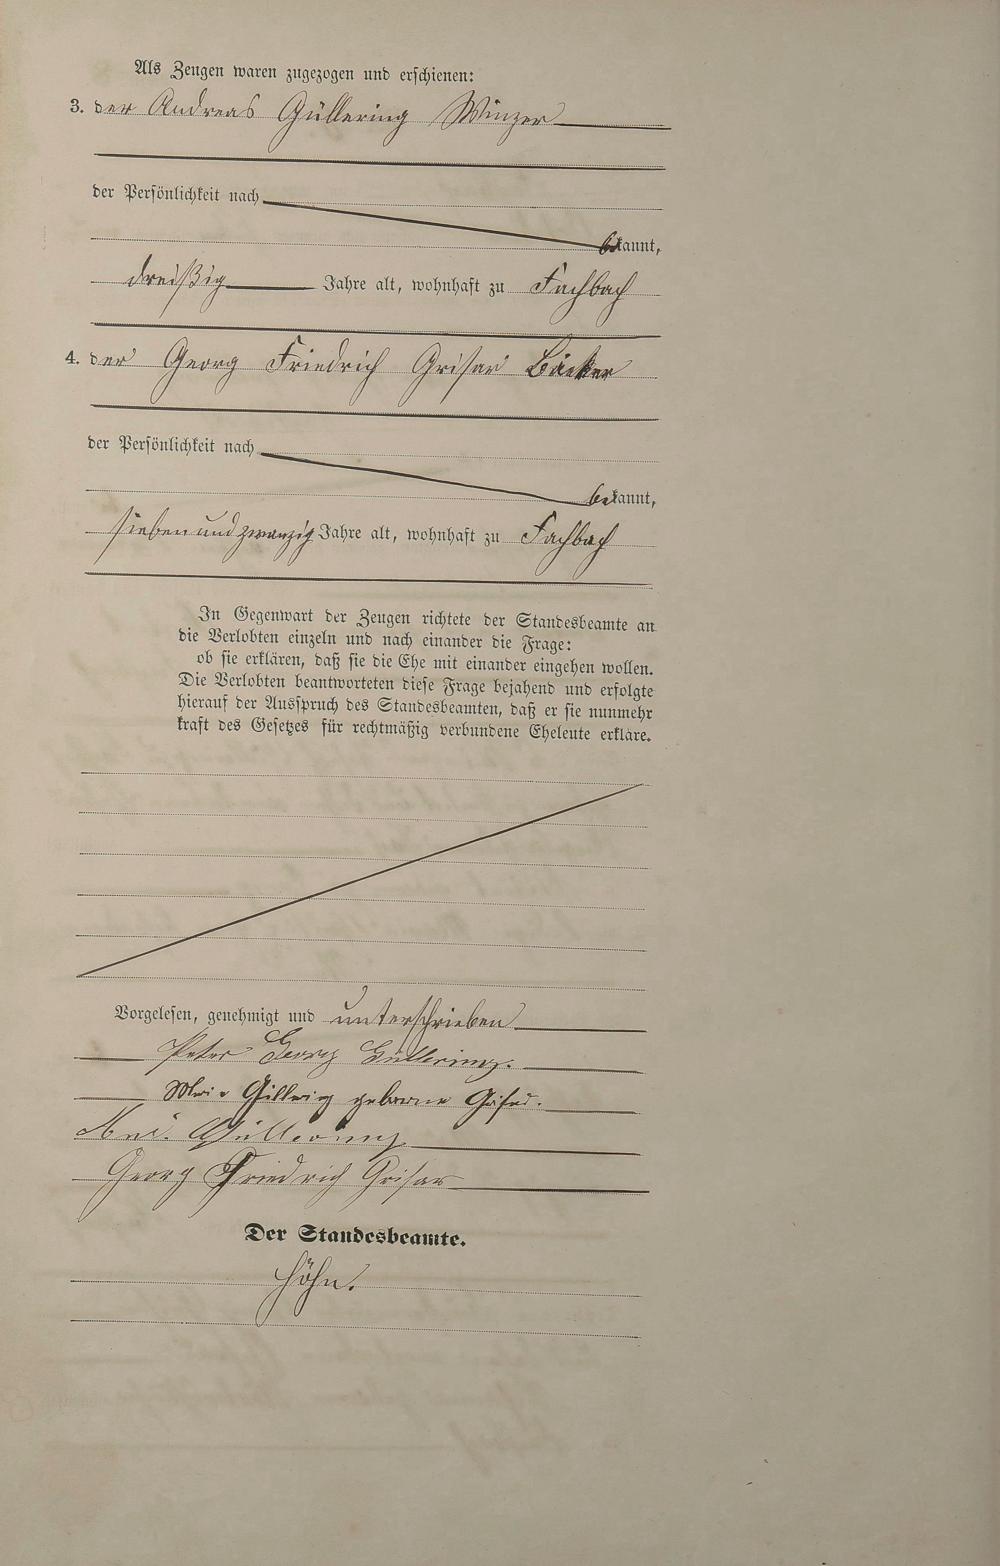 Als Zeugen waren zugezogen und erschienen:
3. der Andreas Güllering Winzer
der Persönlichkeit nach
bekannt,
dreißig Jahre alt, wohnhaft zu Fachbach
4. der Georg Friedrich Grisar Bäcker
der Persönlichkeit nach
bekannt,
sieben und zwanzig Jahre alt, wohnhaft zu Fachbach
In Gegenwart der Zeugen richtete der Standesbeamte an
die Verlobten einzeln und nach einander die Frage:
ob sie erklären, daß sie die Ehe mit einander eingehen wollen.
Die Verlobten beantworteten diese Frage bejahend und erfolgte
hierauf der Ausspruch des Standesbeamten, daß er sie nunmehr
kraft des Gesetzes für rechtmäßig verbundene Eheleute erkläre.
Vorgelesen, genehmigt und unterschrieben
Peter Georg Güllering.
geborene
And. Güllering
Georg Friedrich Grisar
Der Standesbeamte.
Höhn.